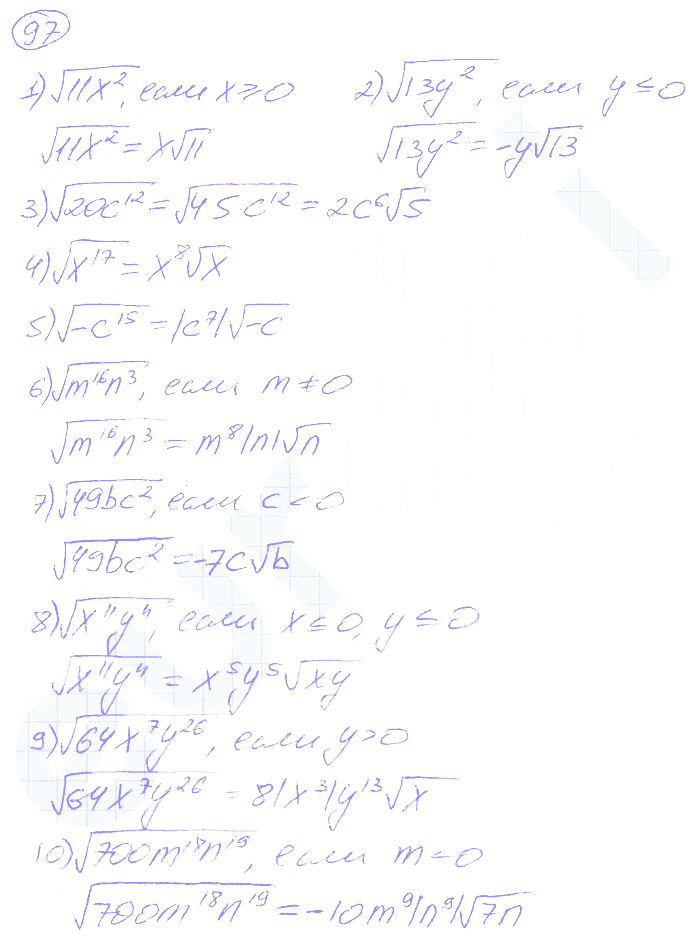 97
1) √11x², если x ≥ 0    2) √13y², если y ≤ 0
√11x² = x√11    √13y² = -y√13
3) √20c¹² = √4·5·c¹² = 2c⁶√5
4) √x¹⁷ = x⁸√x
5) √-c¹⁵ = |c⁷|√-c
6) √m¹⁶n³, если m ≠ 0
√m¹⁶n³ = m⁸|n|√n
7) √49bc², если c < 0
√49bc² = -7c√b
8) √x¹¹y¹¹, если x ≤ 0, y ≤ 0
√x¹¹y¹¹ = x⁵y⁵√xy
9) √64x⁷y²⁶, если y > 0
√64x⁷y²⁶ = 8|x³|y¹³√x
10) √700m¹⁸n¹⁹, если m < 0
√700m¹⁸n¹⁹ = -10m⁹|n⁹|√7n